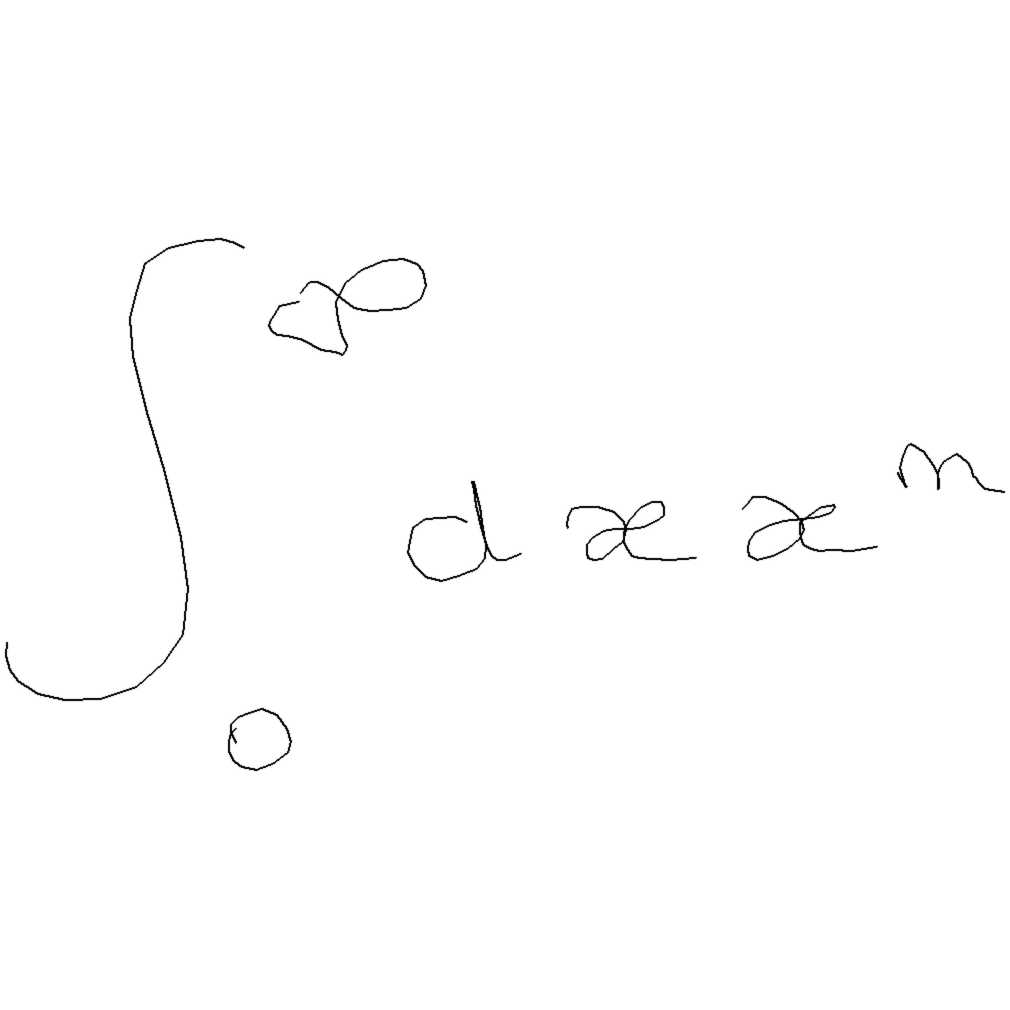 \int_{0}^{\infty} d x x^{m}